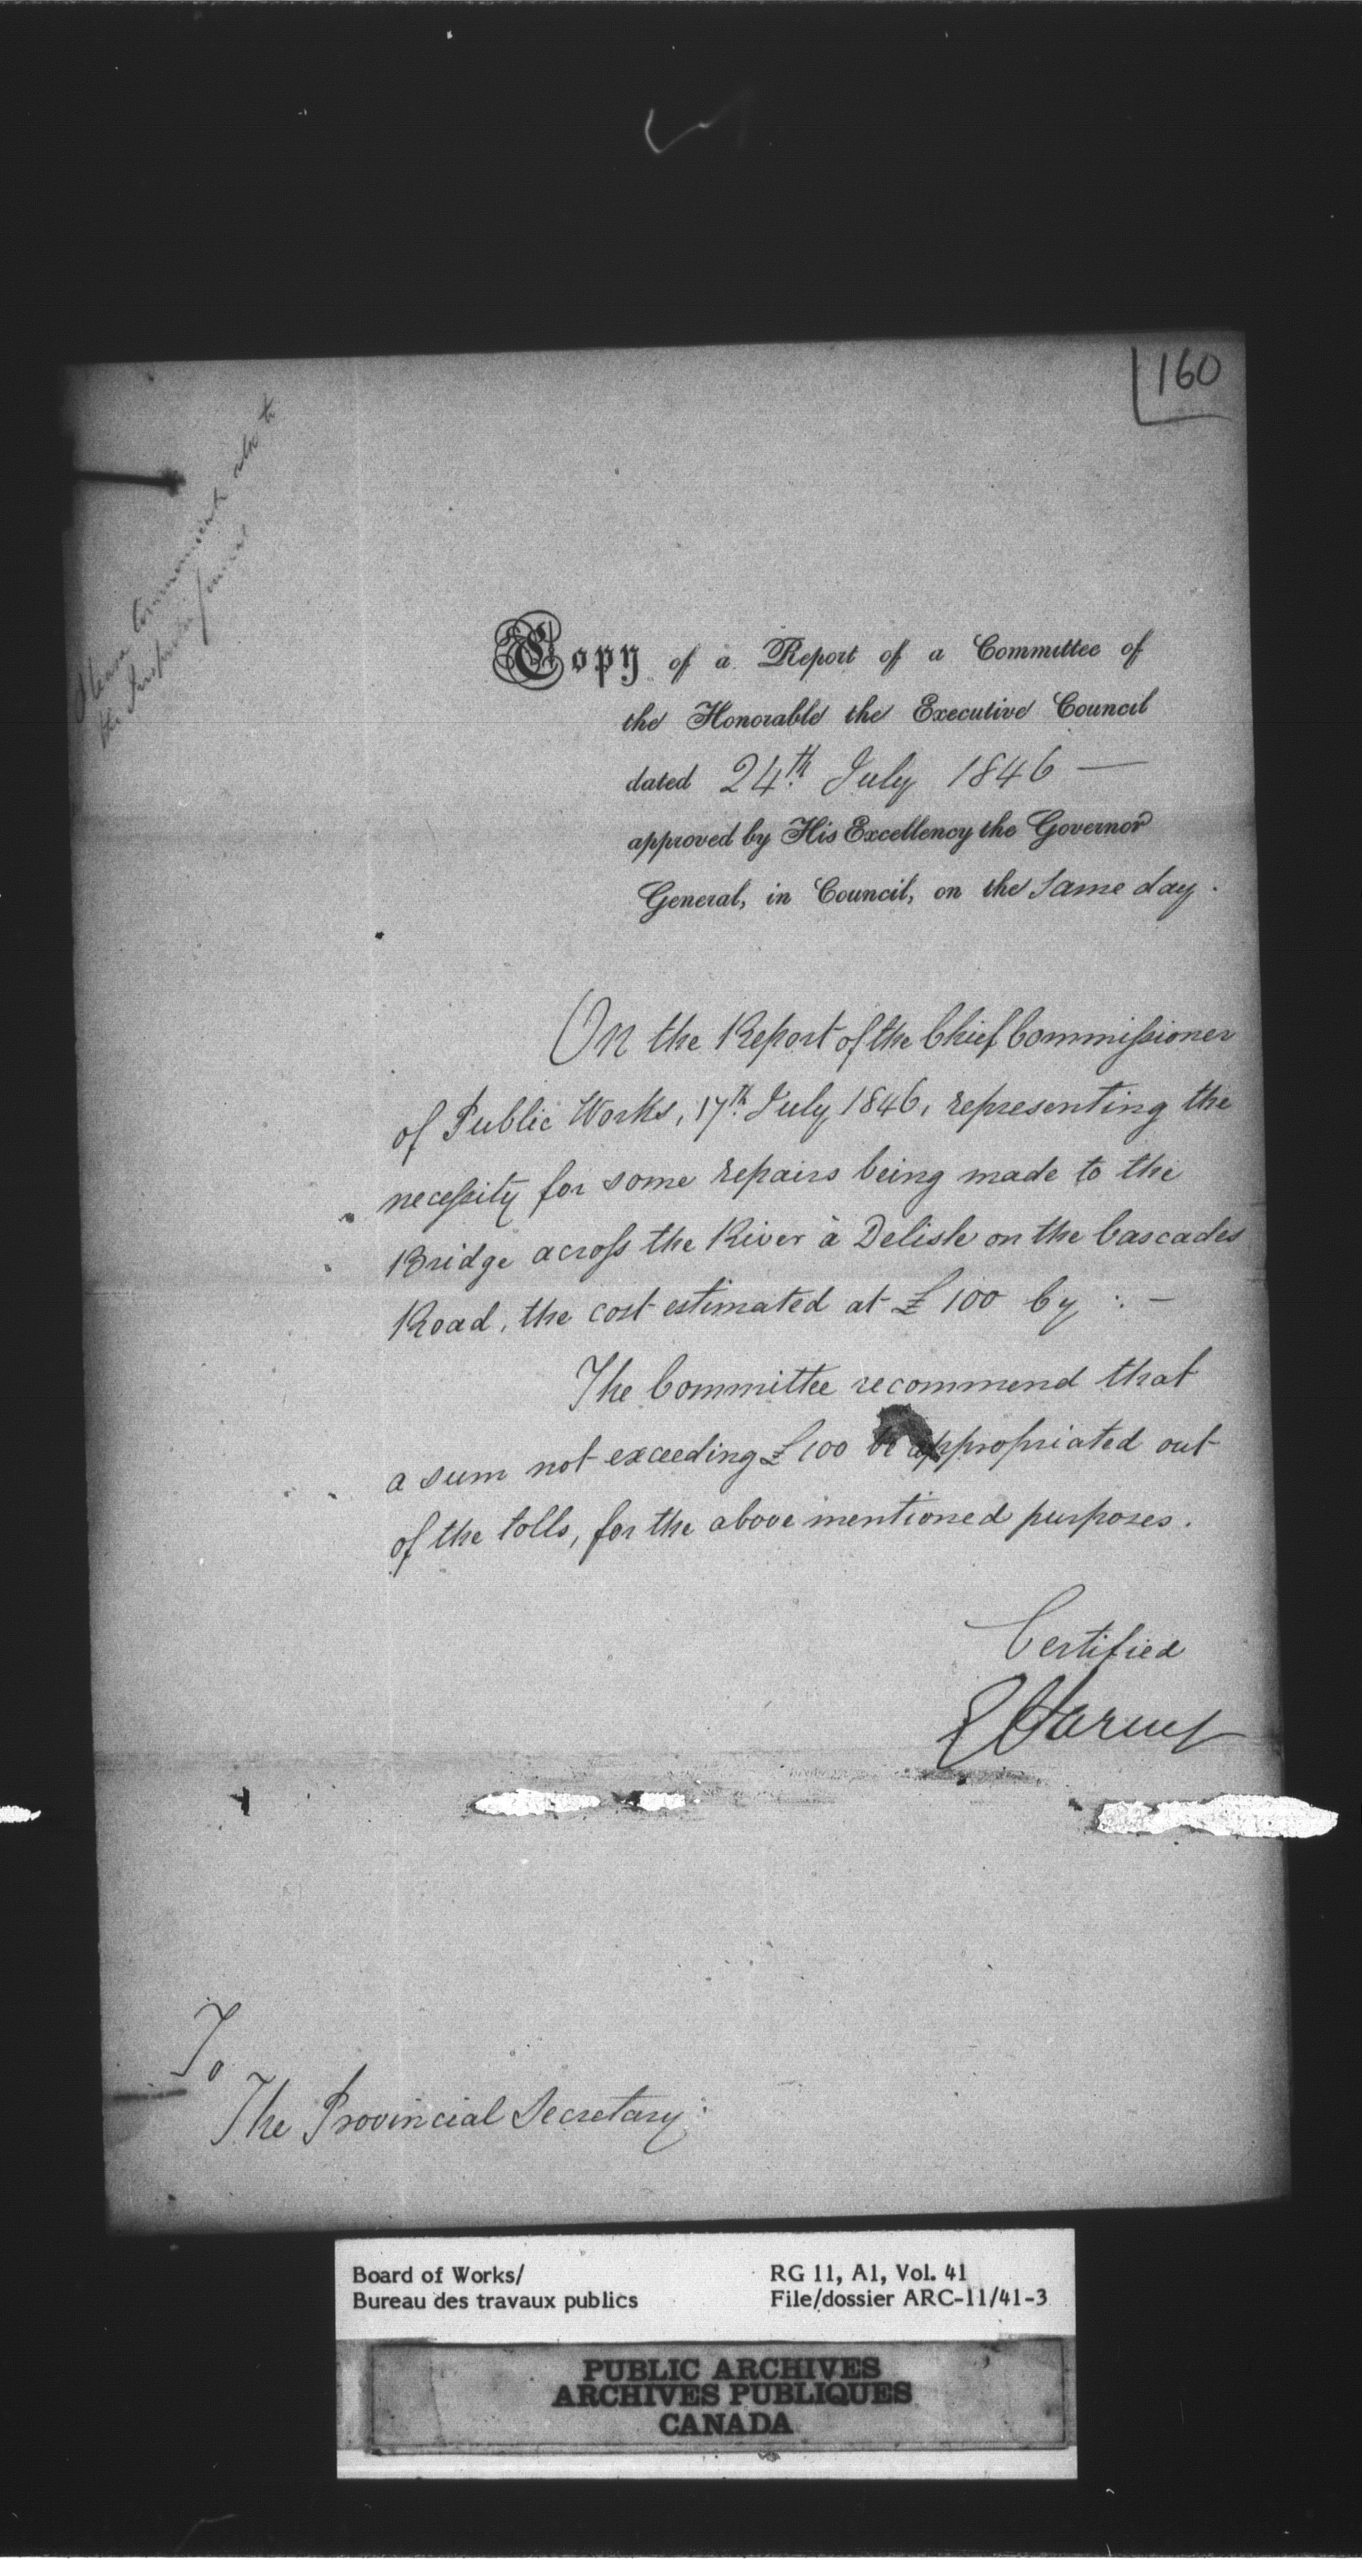 160
Please Communicate also to
the Inspector General
Copy of a Report of a Committee of
the Honorable the Executive Council
dated 24th July 1846 —
approved by His Excellency the Governor
General, in Council, on the same day.
On the Report of the Chief Commissioner
of Public Works, 17th July 1846, representing the
necessity for some repairs being made to the
Bridge across the River à Delisle on the Cascades
Road, the cost estimated at £100 Cy :. —
The Committee recommend that
a sum not exceeding £100 be appropriated out
of the tolls, for the above mentioned purposes.
Certified
To
The Provincial Secretary:
Board of Works/
Bureau des travaux publics
RG 11, A1, Vol. 41
File/dossier ARC-11/41-3
PUBLIC ARCHIVES
ARCHIVES PUBLIQUES
CANADA